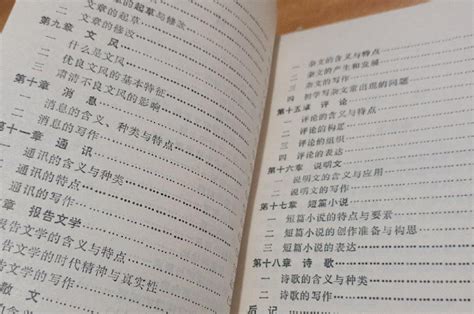 文章的起草与修改
一 文章的起草
二 文章的修改
第九章 文风
一 什么是文风
二 优良文风的基本特征
三 肃清不良文风的影响
第十章 消息
一 消息的含义、种类与特点
二 消息的写作
十一章 通讯
通讯的含义与种类
通讯的特点
通讯的写作
章 报告文学
报告文学的含义与特点
告文学的时代精神与真实性
学的写作
散文
一 杂文的含义与特点
二 杂文的产生和发展
三 杂文的写作
四 初学写杂文常出现的问题
第十五章 评论
一 评论的含义与特点
二 评论的构思
三 评论的组织
四 评论的表达
第十六章 说明文
一 说明文的含义与应用
二 说明文的写作
第十七章 短篇小说
一 短篇小说的特点与要素
二 短篇小说的创作准备与构思
三 短篇小说的表达
第十八章 诗歌
一 诗歌的含义与种类
二 诗歌的写作
后记